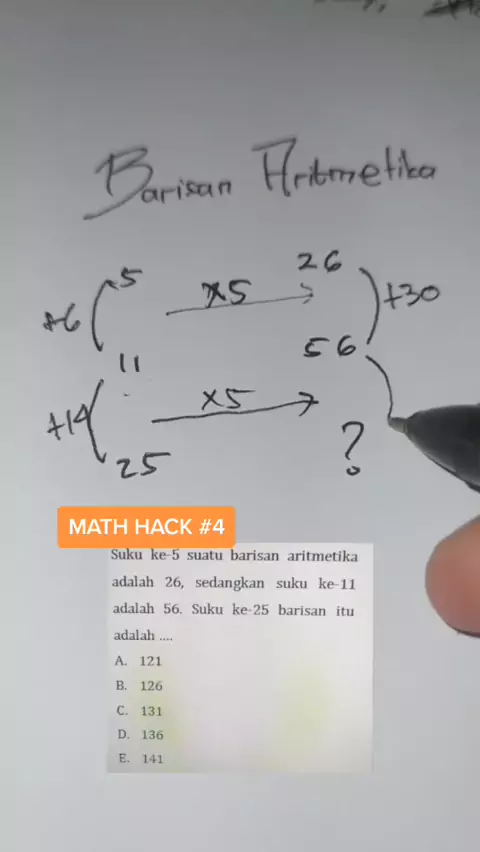 Barisan Aritmetika
5 ×5 26
+6 +30
11 56
+14 ×5
25 ?
MATH HACK #4
Suku ke-5 suatu barisan aritmetika
adalah 26, sedangkan suku ke-11
adalah 56. Suku ke-25 barisan itu
adalah ....
A. 121
B. 126
C. 131
D. 136
E. 141